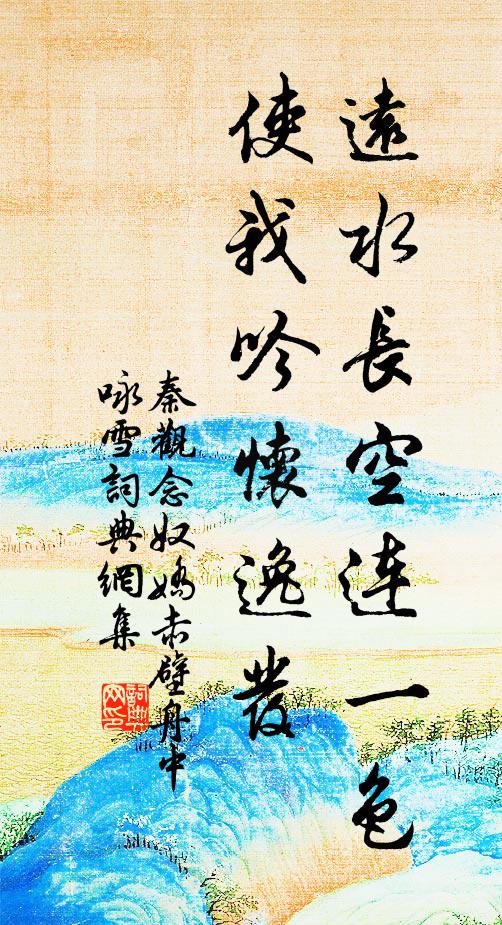 遠水長空連一色
使我吟懷逸發
秦觀念奴嬌赤壁舟中
咏雪詞典網集
詞典網印